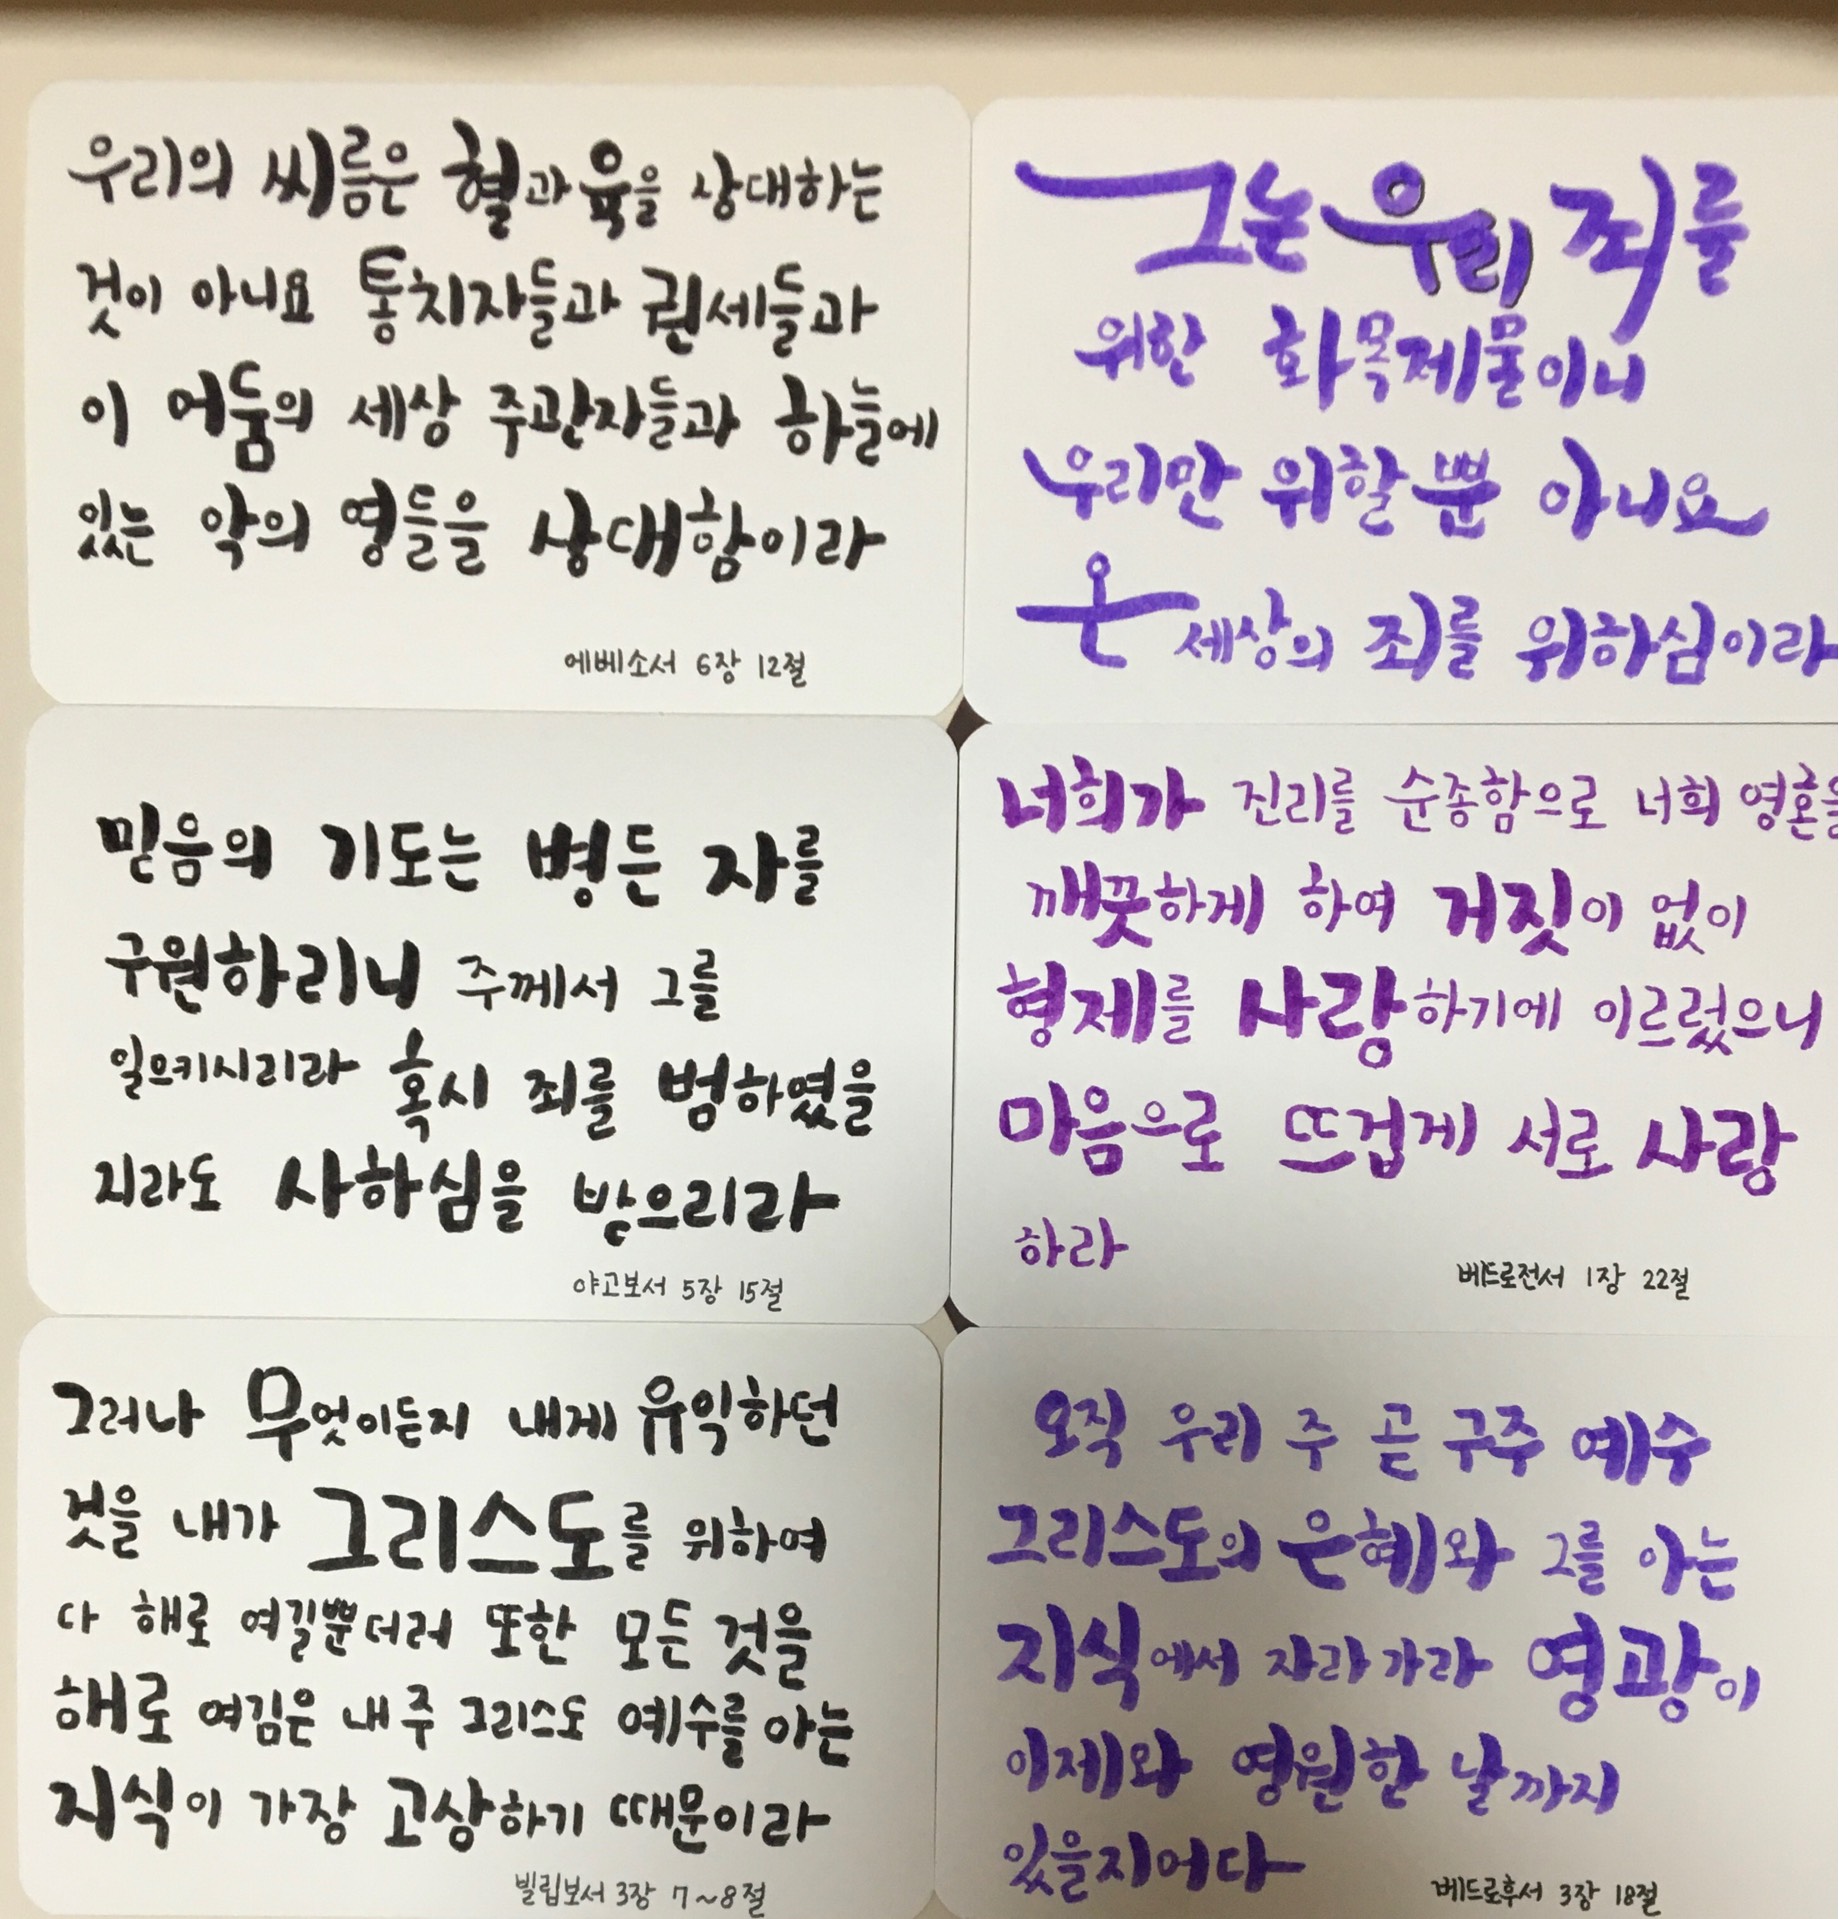 우리의 씨름은 혈과 육을 상대하는
것이 아니요 통치자들과 권세들과
이 어둠의 세상 주관자들과 하늘에
있는 악의 영들을 상대함이라
에베소서 6장 12절
그는 우리 죄를
위한 화목제물이니
우리만 위할 뿐 아니요
온 세상의 죄를 위하심이라
믿음의 기도는 병든 자를
구원하리니 주께서 그를
일으키시리라 혹시 죄를 범하였을
지라도 사하심을 받으리라
야고보서 5장 15절
너희가 진리를 순종함으로 너희 영혼을
깨끗하게 하여 거짓이 없이
형제를 사랑하기에 이르렀으니
마음으로 뜨겁게 서로 사랑
하라
베드로전서 1장 22절
그러나 무엇이든지 내게 유익하던
것을 내가 그리스도를 위하여
다 해로 여길뿐더러 또한 모든 것을
해로 여김은 내 주 그리스도 예수를 아는
지식이 가장 고상하기 때문이라
빌립보서 3장 7~8절
오직 우리 주 곧 구주 예수
그리스도의 은혜와 그를 아는
지식에서 자라가라 영광이
이제와 영원한 날까지
있을지어다
베드로후서 3장 18절